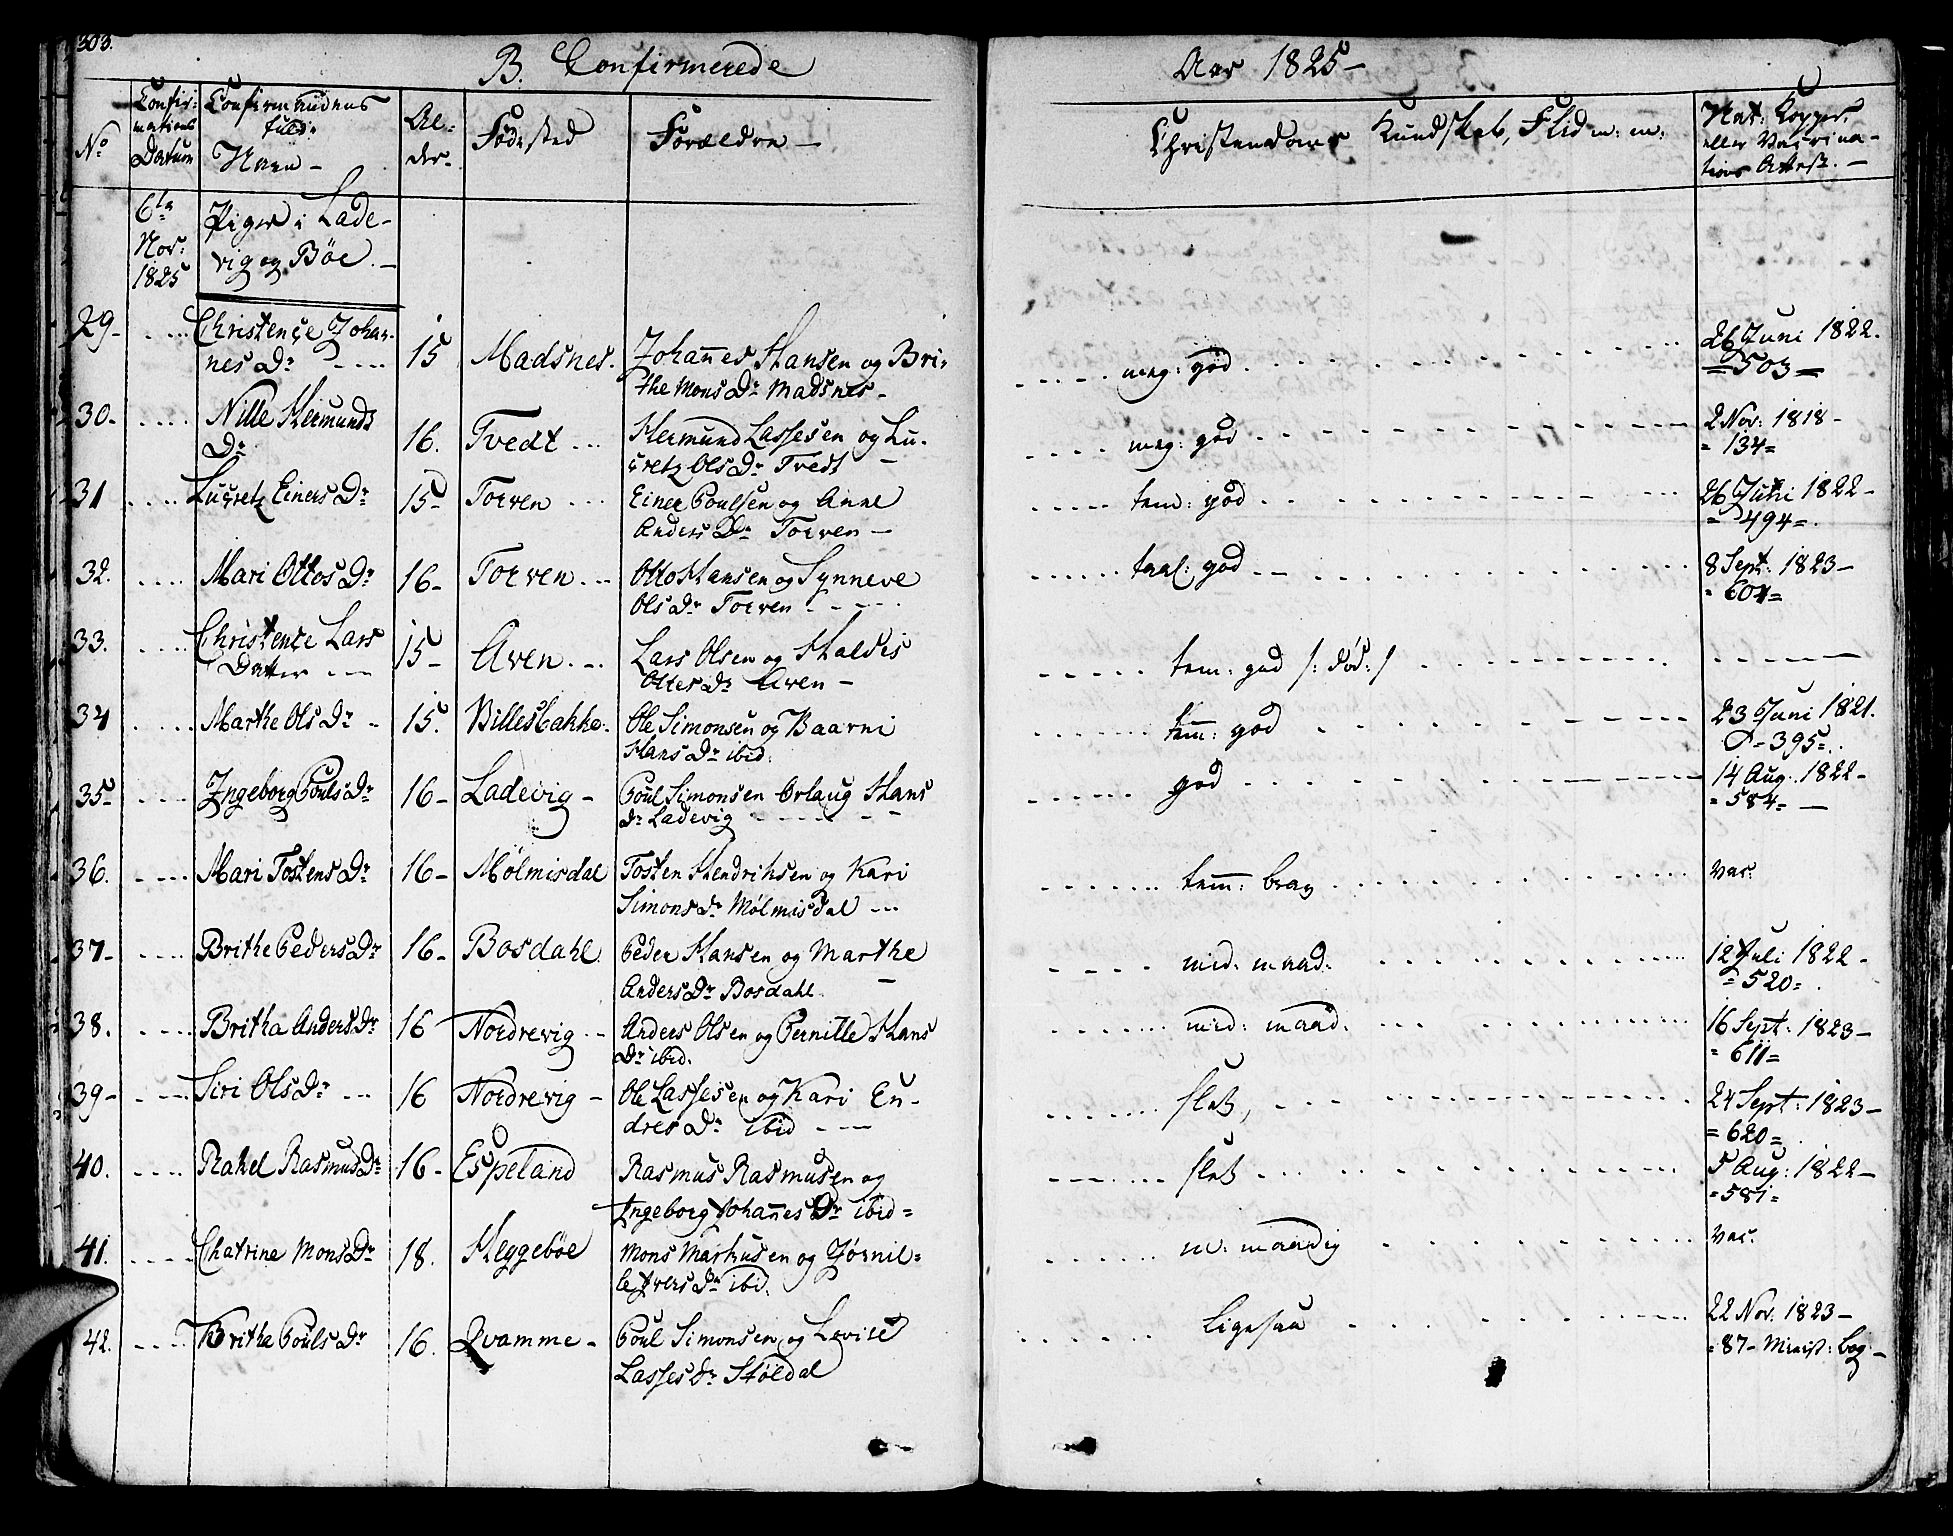 303.
B. Confirmerede Aar 1825-
No Confir: mations Datum Confirmandens fuld: Navn - Al- der- Födested Forældre - Christendoms Kundskab, Flid m: m: Nat: Kopper, eller Vaccina- tions Attest. -
6te Nov: 1825 Piger i Lade- vig og Böe. -
29- Christençe Johan- nes Dr 15 Madsnes. Johannes Hansen og Bri- the Mons Dr Madsnes- meg: god 26 Juni 1822. =503=
30- Nille Hermunds Dr 16. Tvedt Hermund Lassesen og Lu- çretz Ols Dr Tvedt - meg: god 2 Nov: 1818- = 134=
31 Luçretz Einers Dr 15- Torven Einer Poulsen og Anne Anders Dr Torven - tem: god 26 Juni 1822- = 494=
32. Mari Ottos Dr 16- Torven Otto Hansen og Synneve Ols Dr Torven taal: god 8 Sept: 1823- = 604=
33. Christençe Lars Datter 15- Aven Lars Olsen og Haldis Ottes Dr Aven - tem: god /: död: /
34 Marthe Ols Dr - 15. Billesbakke. Ole Simonsen og Baarni Hans Dr ibid: tem̄: god 23 Juni 1821. - 395=
35- Ingeborg Pouls Dr 16- Ladevig - Poul Simonsen Orlaug Hans Dr Ladevig god 14 Aug. 1822- = 584= -
36. Mari Tostens Dr 16- Mölmisdal Tosten Hendriksen og Kari Simons Dr Mölmisdal tem̄: brav vac.
37- Brithe Peders Dr 16- Bosdahl Peder Hansen og Marthe Anders Dr Bosdahl. - mid: maad: 12 Juli 1822- = 520=
38. Britha Anders Dr 16 Nordrevig Anders Olsen og Pernille Hans Dr ibid. mid: maad. 16 Sept: 1823- = 611=
39- Siri Ols Dr 16 Nordrevig - Ole Lassesen og Kari En- dres Dr ibid slet, 24 Sept: 1823- = 620=
40. Rakel Rasmus Dr 16- Espeland Rasmus Rasmusen og Ingeborg Johannes Dr ibid= slet 5 Aug: 1822- = 581=
41. Chatrine Mons Dr 18. Heggeböe Mons Markusen og Jörnil= le Ivers Dr ibid. m: maadig vac.
42. Britha Pouls Dr 16. Qvamme - Poul Simonsen og Lovise Lasses Dr Stöldal Ligesaa 22 Nov. 1823- = 87- Minist: bog -